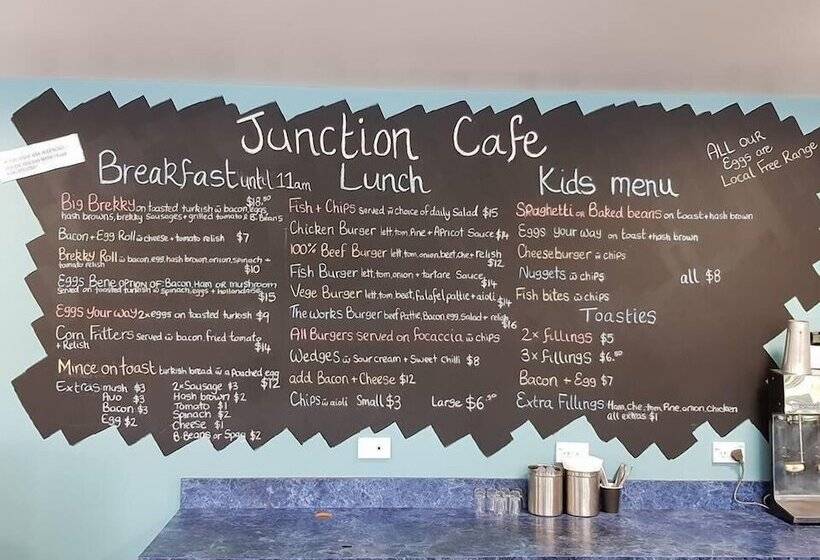 Junction Cafe
ALL OUR
Eggs are
Local Free Range
Breakfast until 11am
Big Brekky on toasted turkish w bacon, eggs, $18.50
hash browns, brekky sausages + grilled tomato & B. Beans
Bacon + Egg Roll w cheese + tomato relish $7
Brekky Roll w bacon, egg, hash brown, onion, spinach +
tomato relish $10
Eggs Bene OPTION OF: Bacon, Ham or mushroom
served on toasted turkish w spinach, eggs + hollandaise $15
Eggs your way 2x eggs on toasted turkish $9
Corn Fritters served w bacon, fried tomato
+ Relish $14
Mince on toast turkish bread w a Poached egg $12
Extras mush $3
Avo $3
Bacon $3
Egg $2
2x Sausage $3
Hash brown $2
Tomato $1
Spinach $2
Cheese $1
B Beans or Spag $2
Lunch
Fish + Chips served w choice of daily Salad $15
Chicken Burger lett, tom, Pine + Apricot Sauce $14
100% Beef Burger lett, tom, onion, beet, che + relish $12
Fish Burger lett, tom, onion + tartare Sauce $14
Vege Burger lett, tom, beet, falafel pattie + aioli $14
The works Burger beef Pattie, Bacon, egg, Salad + relish $16
All Burgers served on focaccia w chips
Wedges w sour cream + Sweet Chilli $8
add Bacon + Cheese $12
Chips w aioli Small $3 Large $6.50
Kids menu
Spaghetti or Baked beans on toast + hash brown
Eggs your way on toast + hash brown
Cheeseburger w chips
Nuggets w chips all $8
Fish bites w chips
Toasties
2x fillings $5
3x fillings $6.50
Bacon + Egg $7
Extra Fillings Ham, che, tom, Pine, onion, Chicken
all extras $1